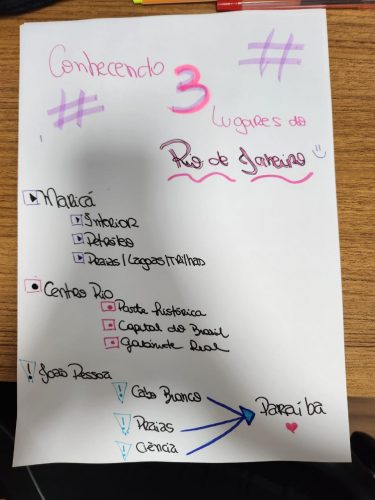 Conhecendo
3
Lugares do
Rio de Janeiro
Maricá
Interior
Petróleo
Praias/Lagoas/Trilhas
Centro Rio
Parte histórica
Capital do Brasil
Gabinete Real
João Pessoa
Cabo Branco
Praias
Ciência
Paraíba